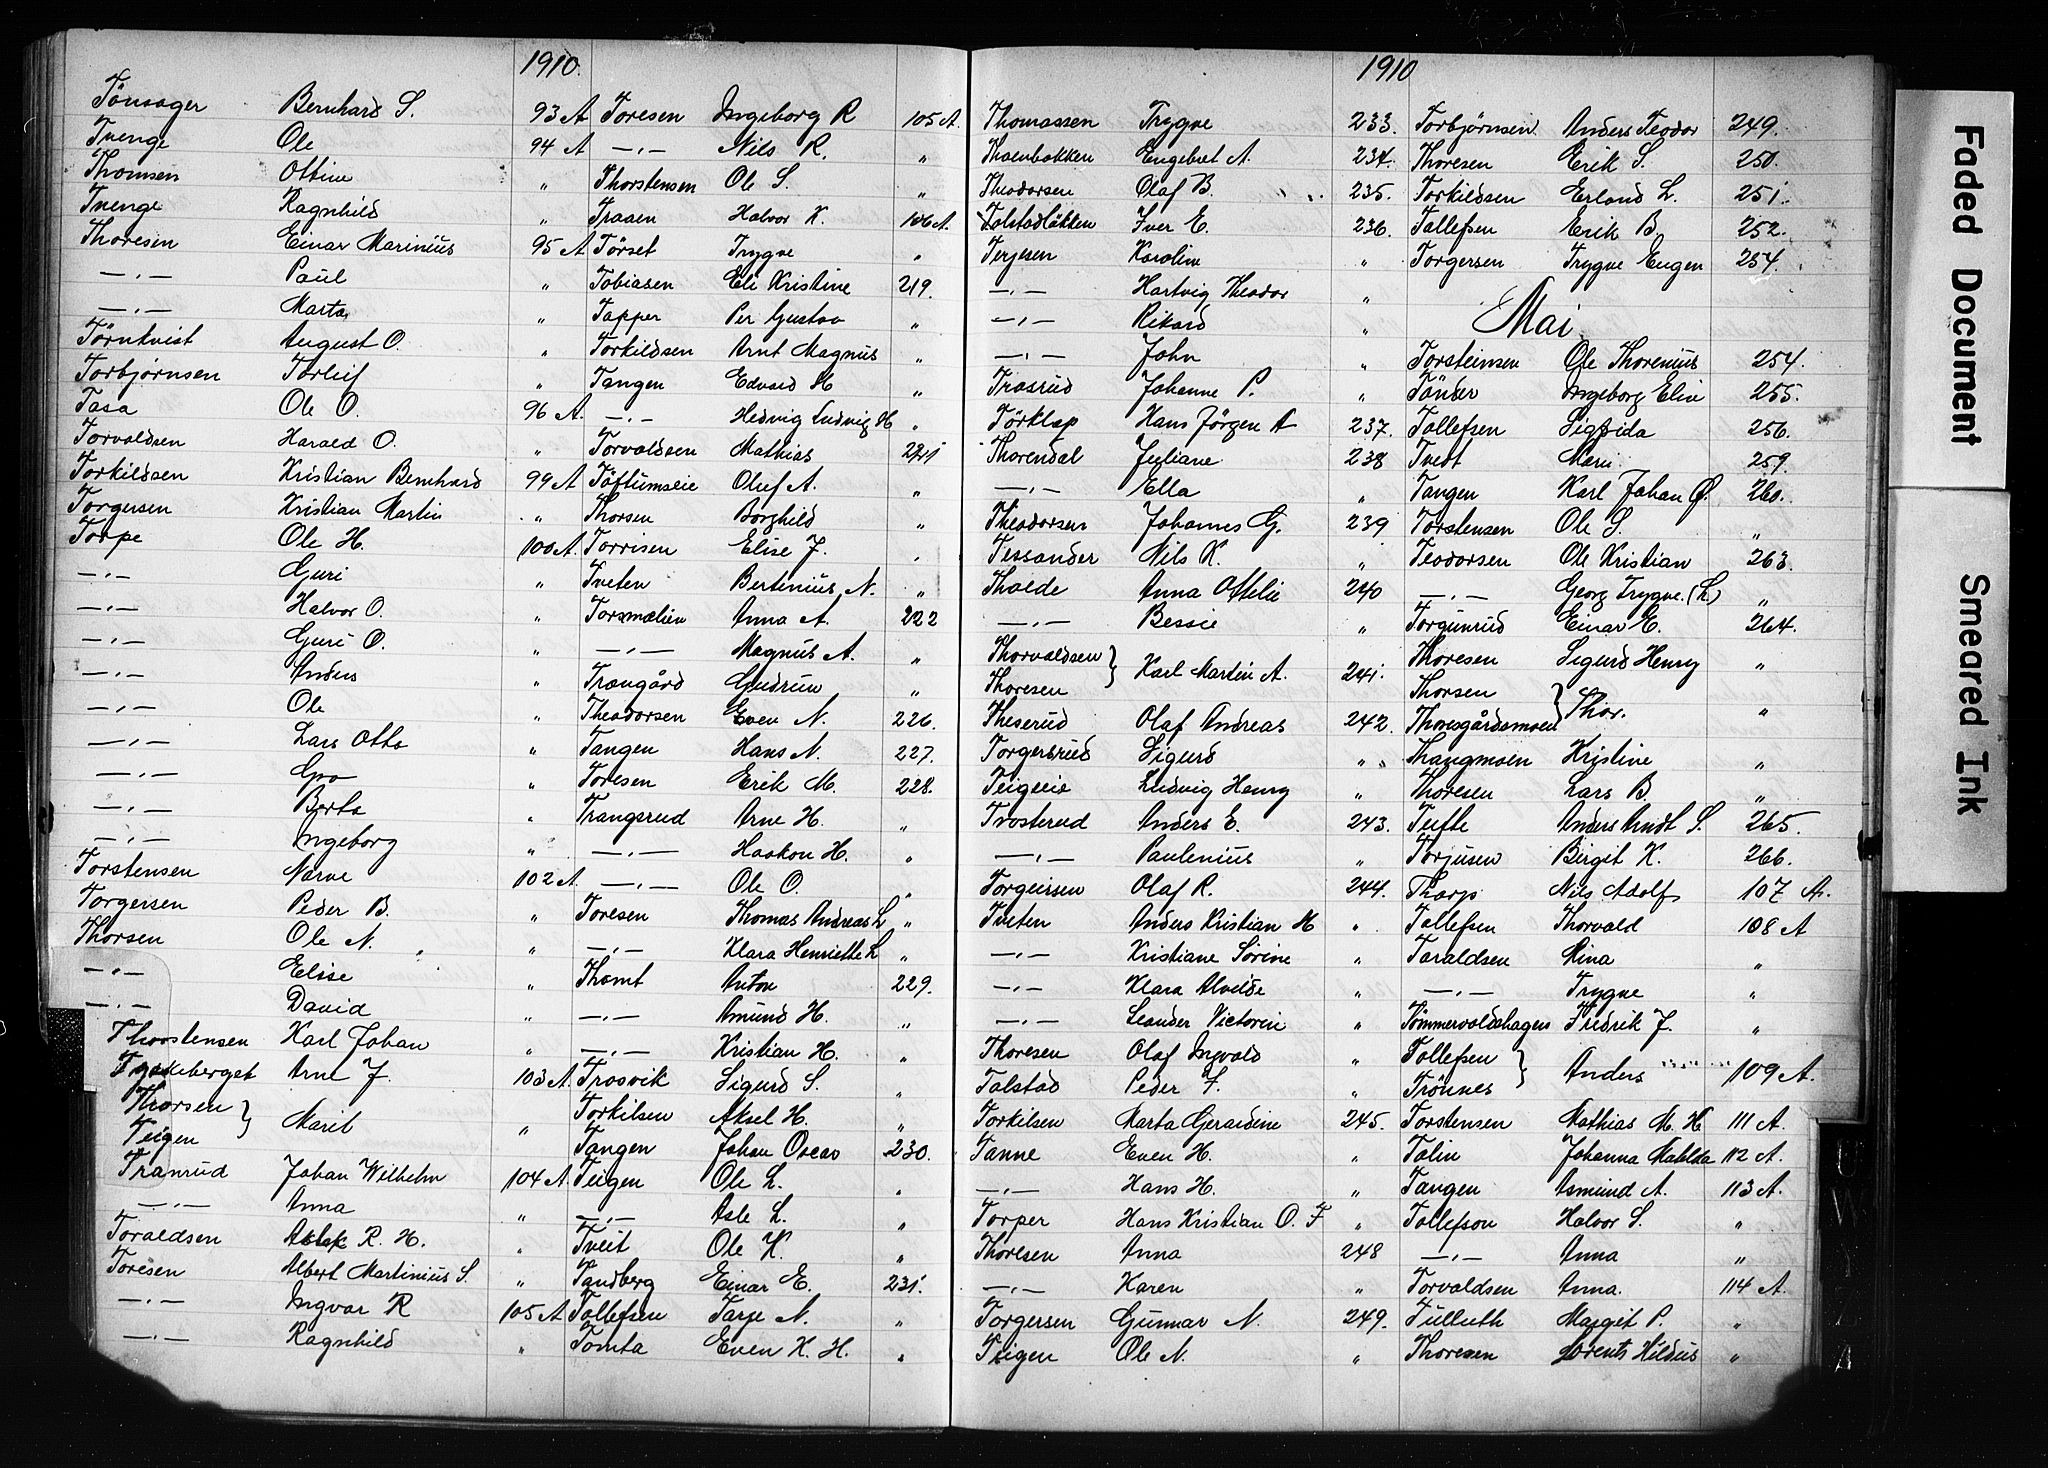 1910.
Tönsager Bernhard S. 93 A
Tvenge Ole 94 A
Thomsen Ottine "
Tvenge Ragnhild "
Thoresen Einar Marinius 95 A
—"— Paul "
—"— Marta "
Törnkvist August O. "
Torbjørnsen Torleif "
Tasa Ole O. 96 A.
Torvaldsen Harald O. "
Torkildsen Kristian Bernhard 99 A
Torgersen Kristian Martin "
Torpe Ole H. 100 A.
—"— Guri "
—"— Halvor O. "
—"— Guri O. "
—"— Anders "
—"— Ole "
—"— Lars Otto "
—"— Gro "
—"— Berta "
—"— Ingeborg "
Torstensen Narve 102 A.
Torgersen Peder B. "
Thorsen Ole N. "
—"— Elise "
—"— David "
Thorstensen Karl Johan "
Arne J. 103 A.
Thorsen }
Teigen } Marit "
Tranrud Johan Wilhelm 104 A.
—"— Anna "
Toraldsen Aslak R. H. "
Toresen Albert Martinius S. "
—"— Ingvar R 105 A
—"— Ragnhild "
Toresen Ingeborg R 105 A.
—"— Nils R. "
Thorstensen Ole S. "
Traaen Halvor K. 106 A.
Törset Trygve "
Tobiasen Eli Kristine 219.
Tapper Per Gustav "
Torkildsen Arnt Magnus "
Tangen Edvard H "
—"— Hedvig Ludvig H "
Torvaldsen Mathias 221
Töftumseie Oluf A. "
Thorsen Borghild "
Torrisen Elise J. "
Tveten Bertinius N. "
Torsmælien Anna A. 222
—"— Magnus A. "
Trængård Gudrun "
Theodorsen Even N. 226.
Tangen Hans N. 227.
Toresen Erik M. 228.
Trangsrud Arne H. "
—"— Haakon H. "
—"— Ole O. "
Toresen Thomas Andreas L "
—"— Klara Henriette L "
Thomt Anton 229.
—"— Amund H. "
—"— Kristian H. "
Trosvik Sigurd S. "
Torkilsen Aksel H. "
Tangen Johan Oscar 230.
Teigen Ole L. "
—"— Asle L. "
Tveit Ole K. "
Tandberg Einar E. 231.
Tollefsen Tarje N. "
Tomta Even K. H. "
1910
Thomassen Trygve 233.
Thoenbakken Engebret A. 234.
Theodorsen Olaf B. 235.
Tolstadløkken Iver E. 236.
Terjesen Karoline "
—"— Hartvig Theodor "
—"— Rikard "
—"— John "
Trasrud Johanne P. "
Törklep Hans Jörgen A 237.
Thorendal Juliane 238
—"— Ella "
Theodorsen Johannes G. 239
Tessander Nils K. "
Tholde Anna Ottelie 240
—"— Bessie "
Thorvaldsen }
Thoresen } Karl Martin A. 241.
Theserud Olaf Andreas 242.
Torgersrud Sigurd "
Teigeie Ludvig Henry "
Trosterud Anders E. 243.
—"— Paulenius "
Torgeirsen Olaf R. 244.
Tveten Anders Kristian H "
—"— Kristiane Sörine "
—"— Klara Alvilde "
—"— Leander Victorin "
Thoresen Olaf Ingvald "
Talstad Peder J. "
Torkilsen Marta Gerardine 245.
Tanne Even H. "
—"— Hans H. "
Torper Hans Kristian O. F "
Thoresen Anna 248
—"— Karen "
Torgersen Gunnar N. 249.
Teigen Ole N. "
Torbjørnsen Anders Teodor 249.
Thoresen Erik S. 250.
Torkildsen Erland L. 251.
Tollefsen Erik B. 252.
Torgersen Trygve Eugen 254.
Mai
Torsteinsen Ole Thorenius 254.
Tönder Ingeborg Elin 255.
Tollefsen Sigfrida 256.
Tvedt Marie 259.
Tangen Karl Johan Ø. 260.
Torstensen Ole S. "
Teodorsen Ole Kristian 263.
—"— Georg Trygve. (L.) "
Torgunrud Einar E. 264.
Thoresen Sigurd Henry "
Thorsen }
Thoresgårdsmoen } Thor. "
Thangmoen Kristine "
Thoresen Lars B. "
Tufte Anders Arndt S. 265.
Torjusen Birgit K. 266.
Tharp Nils Adolf 107 A.
Tollefsen Thorvald 108 A
Taraldsen Mina "
—"— Trygve "
Tömmervoldshagen Fredrik J. "
Tollefsen }
Trönnes } Anders 109 A.
Torstensen Mathias M. H 111 A.
Tolin Johanna Matilda 112 A.
Tangen Asmund A. 113 A.
Tollefson Halvor S. "
—"— Anna "
Torvaldsen Anna. 114 A.
Tulluth Margit P. "
Thoresen Lorents Hildus "
Faded Document
Smeared Ink